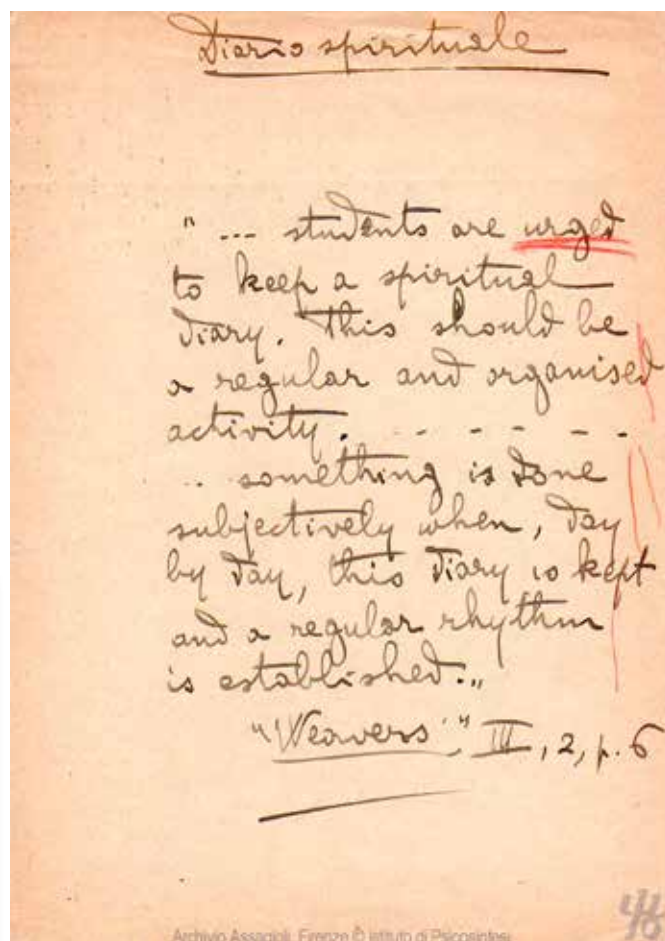 Diario spirituale
"... students are urged
to keep a spiritual
diary. This should be
a regular and organised
activity. - - - - -
.. something is done
subjectively when, day
by day, this diary is kept
and a regular rhythm
is established.„
"Weavers", III, 2, p. 6
Archivio Assagioli, Firenze © Istituto di Psicosintesi